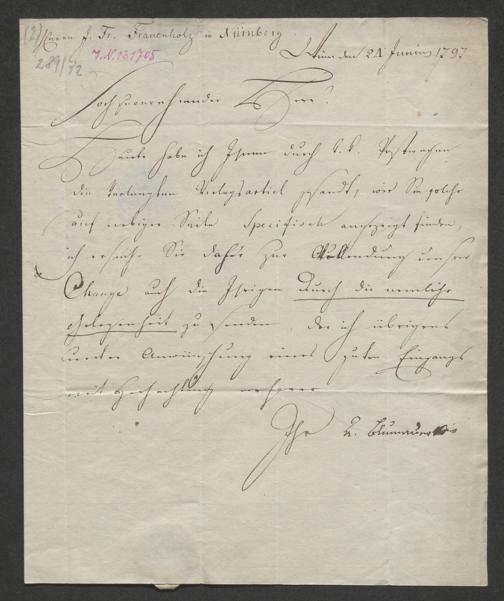 (2) Herrn J. Fr. Frauenholz in Nürnberg
I.N. 131705 Wien den 24 Junius 1797
289/72
Hochzuverehrender Herr!
Heute habe ich Ihnen durch k.k. Postwagen
die verlangten Verlagsartickel gesandt, wie Sie solche
auf nebiger Seite specifisch angezeigt finden,
ich ersuche Sie dafür zur Vollendung unserer
Change auch die Ihrigen durch die nemliche
Gelegenheit zu senden, der ich übrigens
unter Anwünschung eines guten Eingangs
mit Hochachtung
Ihr A. Blumauer